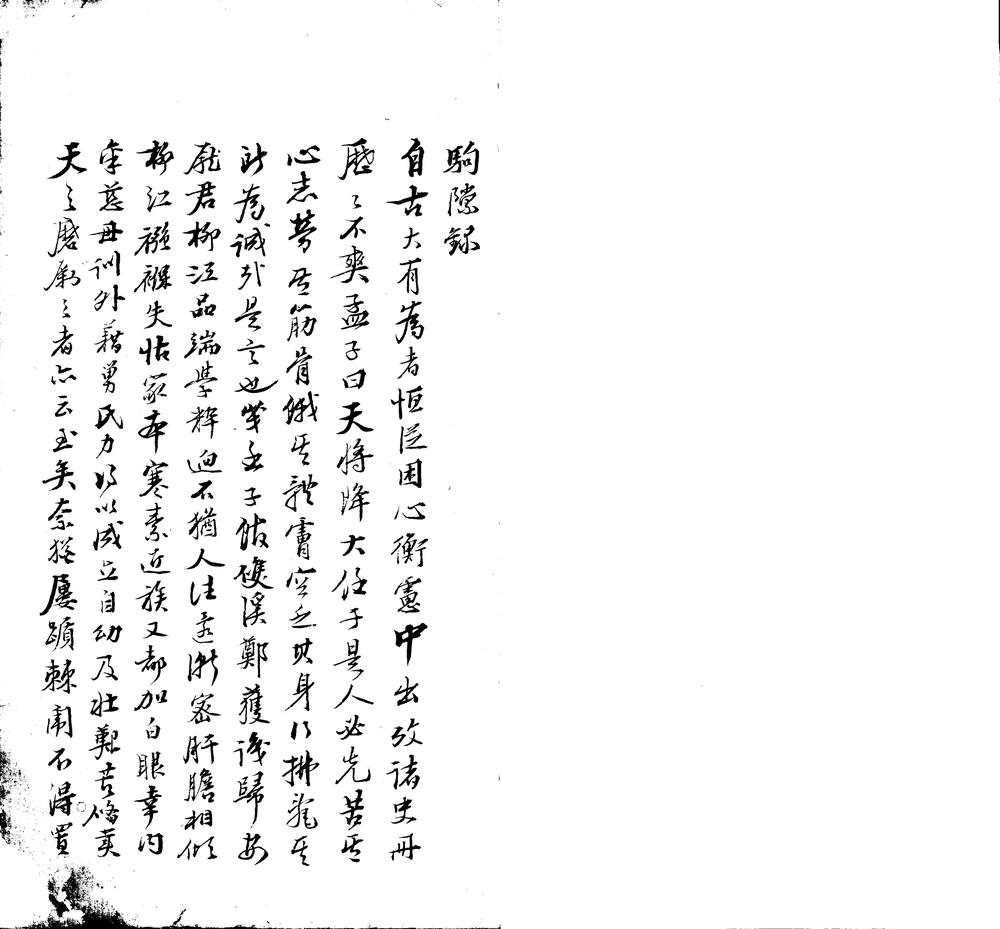 駒隙録
自古大有為者恒從困心衡慮中出攷諸史册
歷々不爽孟子曰天將降大任于是人必先苦其
心志勞其筋骨餓其體膚空乏其身行拂亂其
所為誠哉是言也辛丑予館雙溪鄭獲識歸安
嚴君柳江品端學粹迥不猶人往還漸密肝膽相傾
柳江襁褓失怙家本寒素近族又都加白眼幸內
奉慈母訓外藉舅氏力得以成立自幼及壯艱苦備嘗
天之磨勵之者亦云至矣奈猶屢躓棘闈不得置